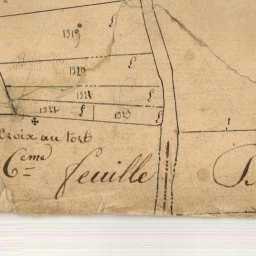 1319
1320
1321
1322 1323
Croix au Fort
6eme feuille